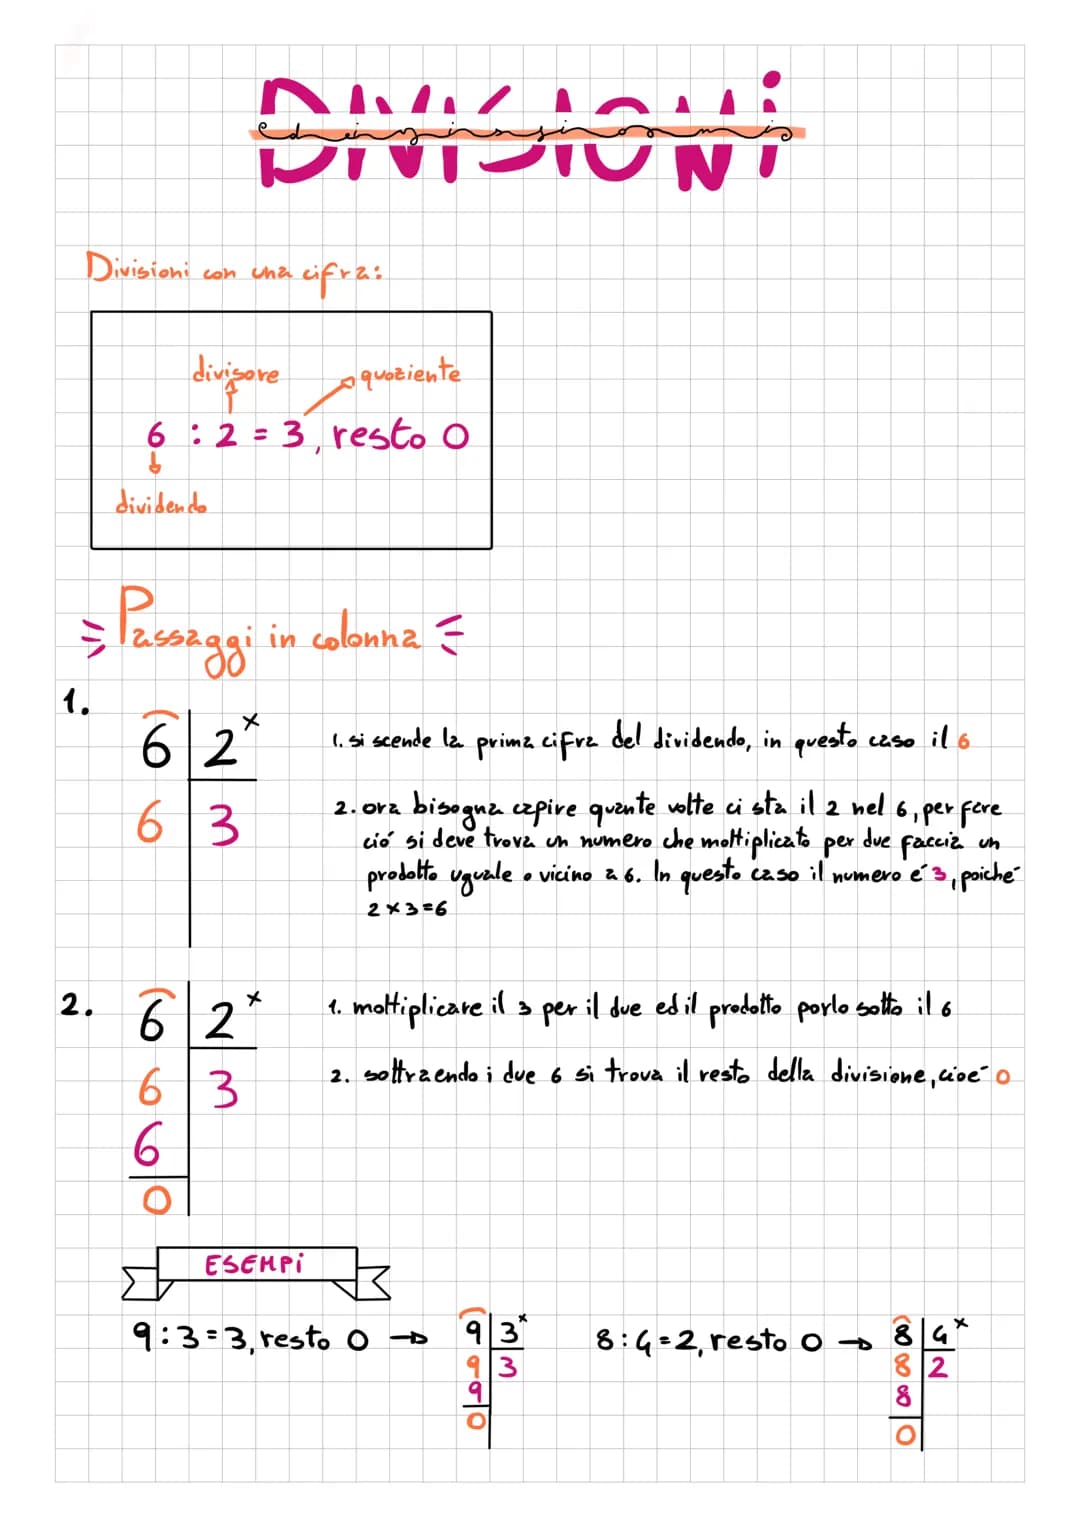 DIVISIONi
ed i suoi sinonimis
Divisioni con una cifra:
divisore quoziente
6 : 2 = 3, resto 0
dividendo
Passaggi in colonna
1.
6 2 x
6 3
1. si scende la prima cifra del dividendo, in questo caso il 6
2. ora bisogna capire quante volte ci sta il 2 nel 6, per fare
ció si deve trova un numero che moltiplicato per due faccia un
prodotto uguale o vicino a 6. In questo caso il numero é 3, poiché
2 x 3 = 6
2.
6 2 x
6 3
6
0
1. moltiplicare il 3 per il due ed il prodotto porlo sotto il 6
2. sottraendo i due 6 si trova il resto della divisione, cioé 0
ESEMPi
9 : 3 = 3, resto 0 →
9 3 x
9 3
9
0
8 : 4 = 2, resto 0 →
8 4 x
8 2
8
0